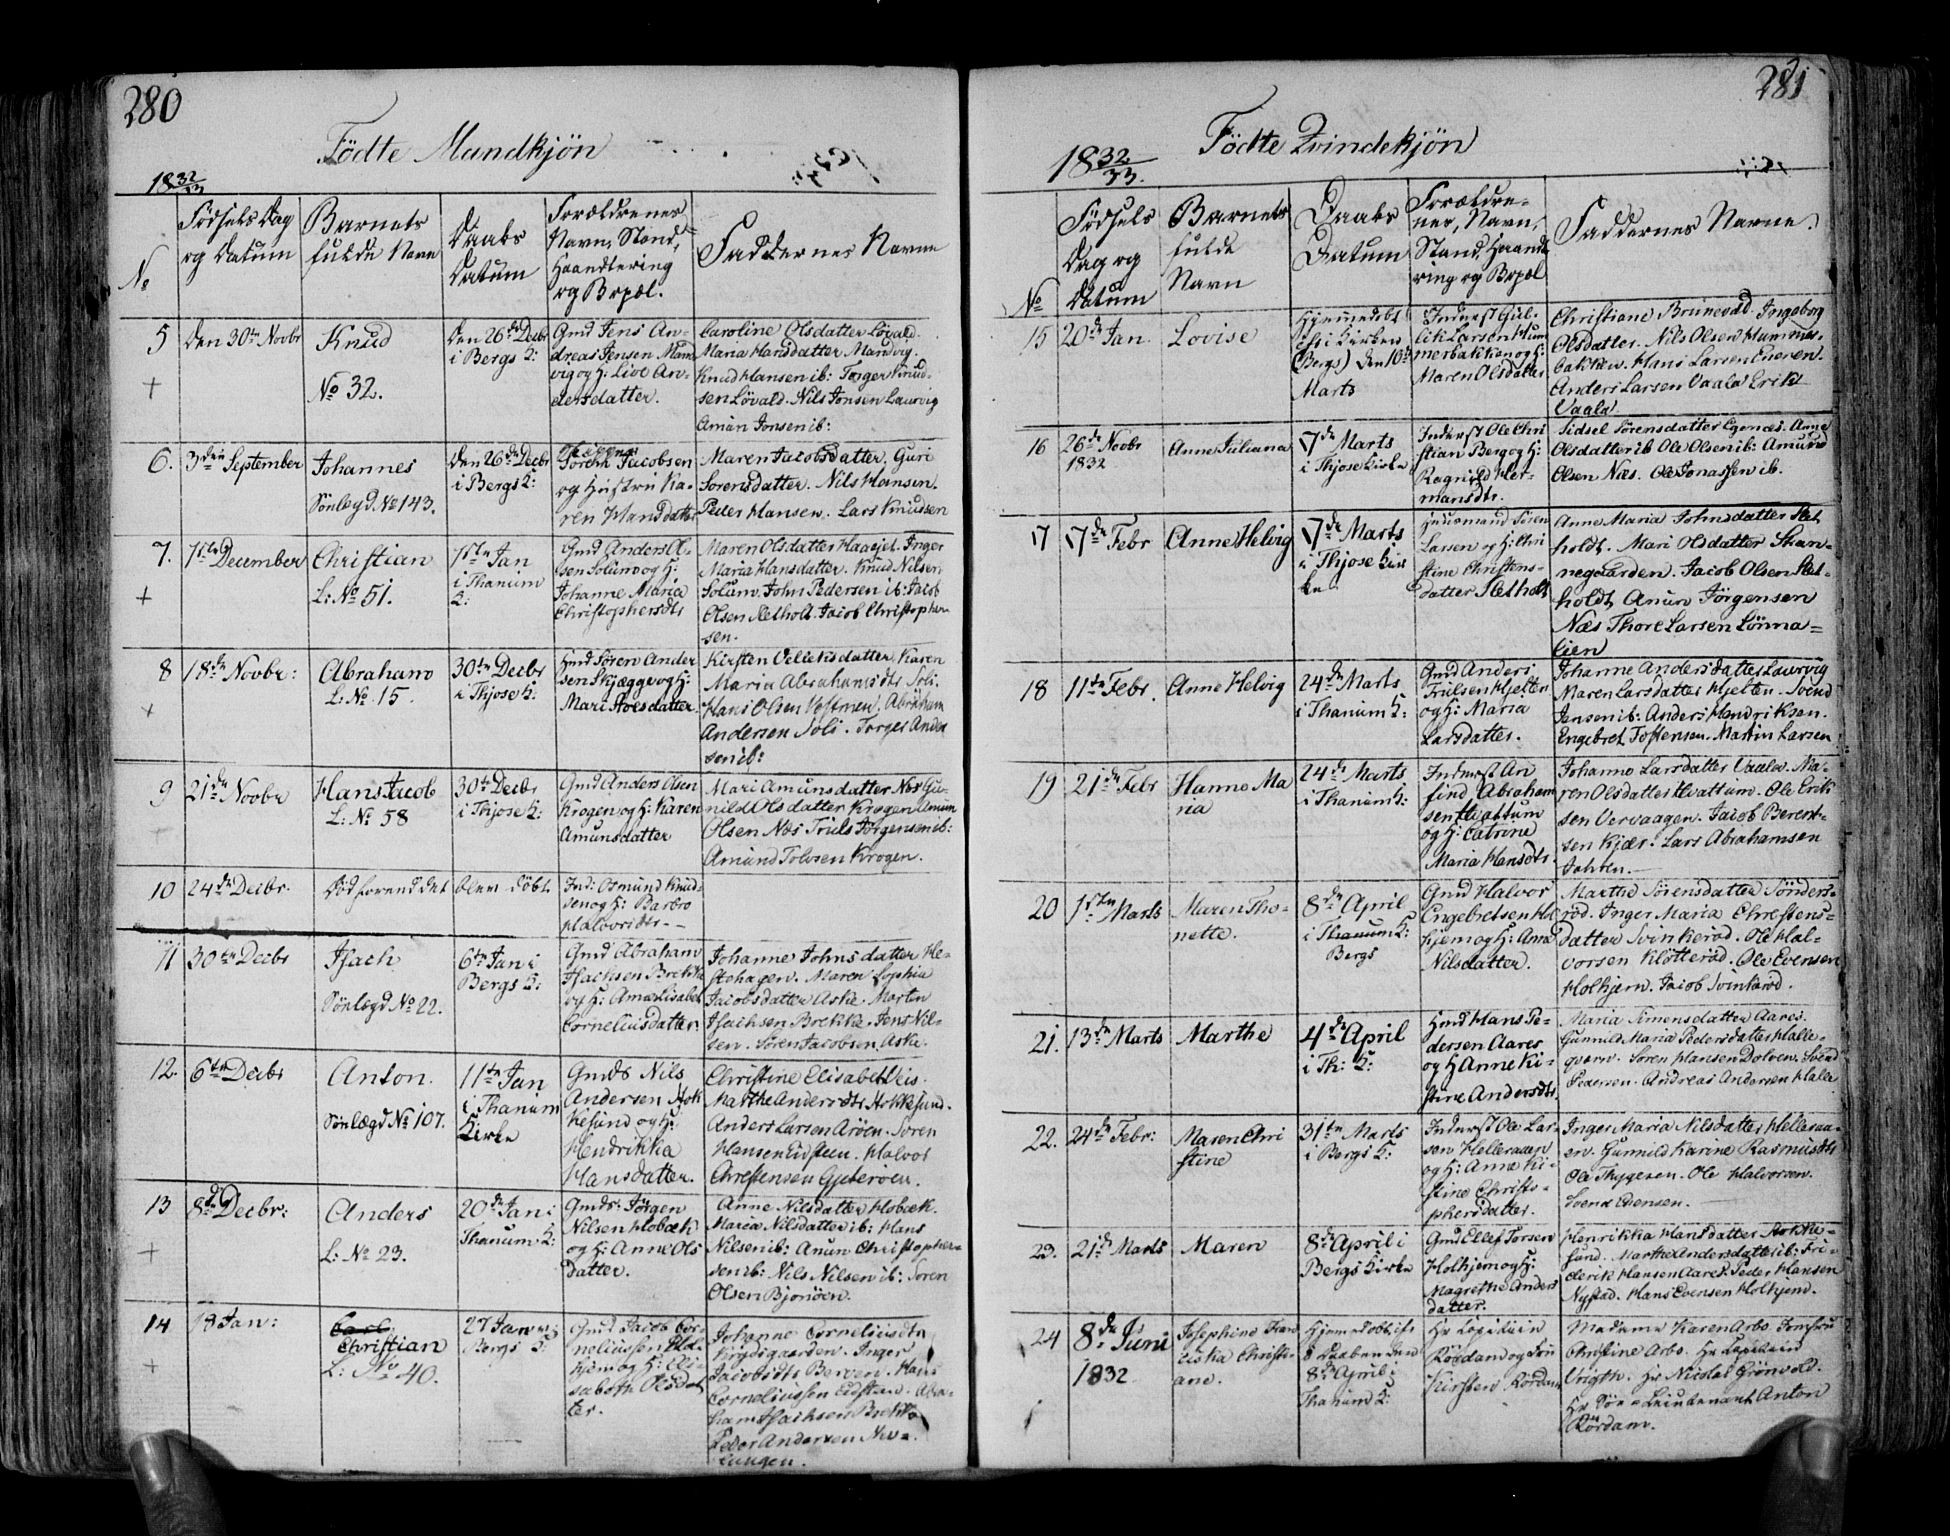 280
Födte Mandkjön
18 32/33
No
Födsels Dag
og Datum
Barnets
fulde Navn
Daabs
Datum
Forældrenes
Navn, Stand,
Haandtering
og Bopæl.
Faddernes Navne
5
Den 30te Novbr
Knud
No 32.
Den 26de Decbr
i Bergs K:
Gmd Jens An-
dreas Jensen Mand
vig og H: Live An-
dersdatter.
Caroline Olsdatter Løvald.
Maria Hansdatter Mandvig.
Knud Hansen ib: Torger Knud-
sen Løvald. Nils Jonsen Laurvig
Amun Jonsen ib:
6.
3die September
Johannes
Sönlægd No 143.
Den 26de Decbr
i Bergs K:
Sören Jacobsen
og Hustru Ka-
ren Hansdatter
Maren Jacobsdatter. Guri
Sorensdatter. Nils Hansen.
Peder Hansen. Lars Knudsen
7.
1ste December
Christian
L: No 51.
1ste Jan
i Thanum
K:
Gmd Anders Ol-
sen Solum og H:
Johanne Maria
Christophersdtr
Maren Olsdatter Haaejet. Inger
Maria Hansdatter. Knud Nilsen
Solum. John Pedersen ib: Jacob
Olsen Rethold. Jacob Christopher
sen.
8
18de Novbr:
Abraham
L: No 15.
30te Decbr
i Thjose K:
Hmd Sören Ander
sen Skjægge og H:
Mari Avesdatter.
Kirsten Velieksdatter. Karen
Maria Abrahamsdtr Soli.
Hans Olsen Vestmen. Abraham
Andersen Soli. Torger Ander
sen ib:
9
21de Novbr
Hans Jacob
L: No 58
30te Decbr
i Thjose K:
Gmd Anders Olsen
Krogen og H: Karen
Amunsdatter
Mari Amunsdatter Næs Gu-
nild Olsdatter Krogen Amun
Olsen Næs Truls Jørgensen ib:
Amund Tolvsen Krogen.
10
24de Decbr.
Död forend det
blev döbt
Ind: Osmund Knud-
sen og H: Barbro
Halvorsdtr.
11
30te Decbr
Isach
Sönlægd No 22.
6te Jan i
Bergs K:
Gmd Abraham
Isachsen Brekke
og H: Anne Lisabet
Corneliusdatter.
Johanne Johnsdatter He-
stehagen. Maren Sophia
Jacobsdatter Aske. Morten
Isachsen Brekke. Jens Nil-
sen. Sören Jacobsen Aske.
12.
6te Decbr
Anton.
Sönlægd No 107.
11te Jan
i Thanum
Kirke
Gmds Nils
Andersen Hok
kesund og H:
Hendrikka
Hansdatter.
Christine Elisabet Veis.
Marthe Andersdtr Hokkesund.
Anders Larsen Aröen. Soren
Hansen Eidsteen. Halvor
Christensen Gjeteröen.
13
8de Decbr:
Anders
L: No 23.
20de Jan i
Thanum K:
Gmds: Jørgen
Nilsen Hobæk
og H: Anne Ols
datter.
Anne Nilsdatter Hobæk.
Maria Nilsdatter ib: Hans
Nilsen ib: Anun Christopher-
sen ib: Nils Nilsen ib: Soren
Olsen Bjonöen.
14
18 Jan:
Christian
L: No 40.
27 Jan
Bergs K:
Gmd Jacob Cor-
neliussen Hol-
hjem og H: Eli-
sabeth Olsdat
ter.
Johanne Corneliusdtr
Krigdsgaarden. Inger
Jacobsdtr Bergen. Hans
Corneliussen Eidsten. Abra-
ham Isachsen Brekke
Peder Andersen Nev-
lungen.
281
18 32/33.
Födte Qvindekjön
No
Födsels
Dag og
Datum
Barnets
fulde
Navn
Daabs
Datum
Forældre-
nes, Navn,
Stand, Haandte
ring og Bopæl
Faddernes Navne.
15
20de Jan.
Lovise
Hjemmedöbt
ist i Kirken
(Bergs) den 10de
Marts
Inderst Gul-
lik Larsen Hum
merbakken og H:
Maren Olsdatter
Christiane Brunevold. Ingeborg
Olsdatter. Nils Olsen Hummer-
bakken. Hans Larsen Eueren.
Anders Larsen Vaale Erik
Vaale
16
26de Novbr
1832
Anne Juliana
7de Marts
i Thjose Kirke
Inderst Ole Chri
stian Berg og H:
Ragnild Her-
mansdtr.
Sidsel Sörensdatter Egenæs. Anne
Olsdatter ib Ole Olsen ib: Amund
Olsen Næs. Ole Jonassen ib.
17
7de Febr
Anne Helvig
7de Marts
i Thjose Kir
ke
Huusmand Sören
Larsen og H: Chri
stine Christens-
datter Rethold
Anne Maria Johnsdatter Ret
holdt. Mari Olsdatter Skan-
negaarden. Jacob Olsen Ret-
holdt Anun Jörgensen
Næs Thore Larsen Lönna-
lien
18
11te Febr.
Anne Helvig
24de Marts
i Thanum K:
Gmd Anders
Trulsen Hjelten
og H: Maria
Larsdatter.
Johanne Andersdatter Laurvig
Maren Larsdatter Hjelten. Svend
Jensen ib: Anders Hendriksen.
Engebret Tostensen. Martin Larsen
19
21de Febr
Hanne Ma
ria
24de Marts
i Thanum K:
Inderst An
find Abraham
sen Hvattum
og H: Catrine
Maria Hansdtr.
Johanne Larsdatter Vaale. Ma-
ren Olsdatter Hvattum. Ole Erik
sen Vervaagen. Jacob Berent-
sen Kjær. Lars Abrahamsen
20
1ste Marts
Maren Tho-
nette.
8de April
i Thanum K:
Bergs
Gmd Halvor
Engebretsen Hol
hjem og H: Anne
Nilsdatter.
Marthe Sörensdatter Sönders-
röd. Inger Maria Christens-
datter Svinkeröd. Ole Hal-
vorsen Klötteröd. Ole Evensen
Holhjem. Jacob Svinkeröd.
21.
13de Marts
Marthe
4de April
i Th: K:
Hmd Hans Pe-
dersen Aares
og H Anne Ki-
stine Andersdtr.
Maria Simensdatter Aares.
Gunnild Maria Pedersdatter Halle-
qværn. Sören Hansen Dolven. Svend
Pedersen. Andreas Andersen Halle
22.
24de Febr:
Maren Chri
stine
31te Marts
i Bergs K:
Inderst Ole Lar-
sen Helleraaen
og H: Anne Ki-
stine Christo-
phersdatter.
Inger Maria Nilsdatter Helleraa-
en. Gunnild Karine Rasmusdtr
Ole Thygesen. Ole Halvorsen.
Svend Evensen.
23.
21de Marts
Maren
8de April i
Bergs Kirke
Gmd Ellef Torsen
Holhjem og H:
Magrethe Anders
datter.
Henrikka Hansdatter Hokke-
sund. Marthe Andersdatter ib: Fri-
derik Hansen Aares. Peder Hansen
Nystad. Hans Evensen Holhjem.
24
8de Juni
1832
Josephine Fran
ciska Christi-
ane.
Hjemmedöbt ist
8de April i
Thanum K:
Hr Capitain
Rördam og Fru
Kirsten Rördam
Madame Karen Arbo. Jomfru
Christine Arbo. Hr Capitain
Wrigth. Hr Nicolai Grönvold.
Hr Söe-Leutenant Anton
Rördam.